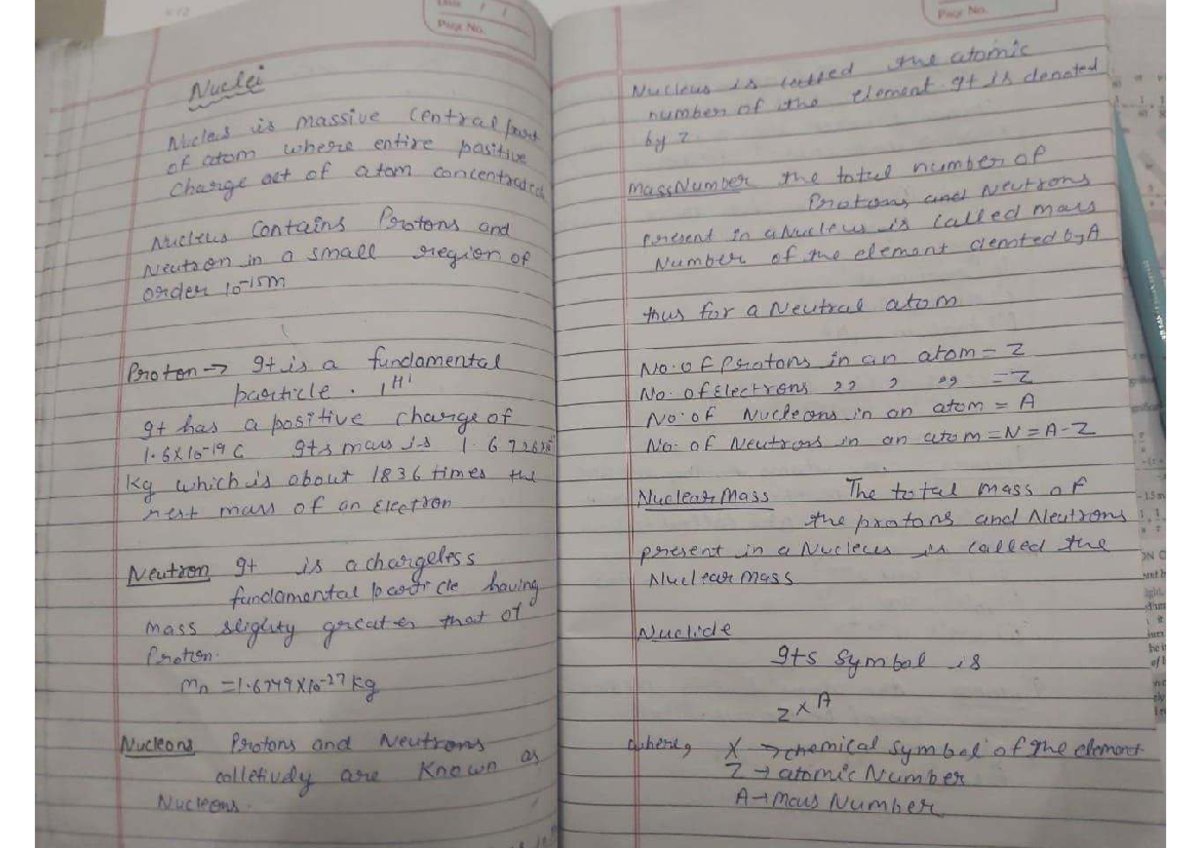 Date / /
Page No.
Nuclei
Nucleus is massive central part
of atom where entire positive
charge act of atom concentrated
Nucleus contains Protons and
Neutron in a small region of
order 10-15m
Proton → It is a fundamental
particle. 1H1
It has a positive charge of
1.6X10-19 C Its mass is
Kg which is about 1836 times the
rest mass of an Electron
Neutron It is a chargeless
fundamental particle having
mass slighty greater that of
Proton.
mn = 1.6749X10-27 Kg
Nucleons Protons and Neutrons
colletively are Known as
Nucleons.
Page No.
Nucleus is called the atomic
number of the element. It is denoted
by Z
Mass Number the total number of
Protons and Neutrons
present in a Nucleus is called mass
Number of the element denoted by A
thus for a Neutral atom
No. of Protons in an atom = Z
No. of Electrons ,, , ,, = Z
No. of Nucleons in an atom = A
No. of Neutrons in an atom = N = A-Z
Nuclear Mass The total mass of
the protons and Neutrons
present in a Nucleus is called the
Nuclear mass
Nuclide
Its Symbol is
ZXA
where, X → chemical Symbol of the element
Z → atomic Number
A → Mass Number